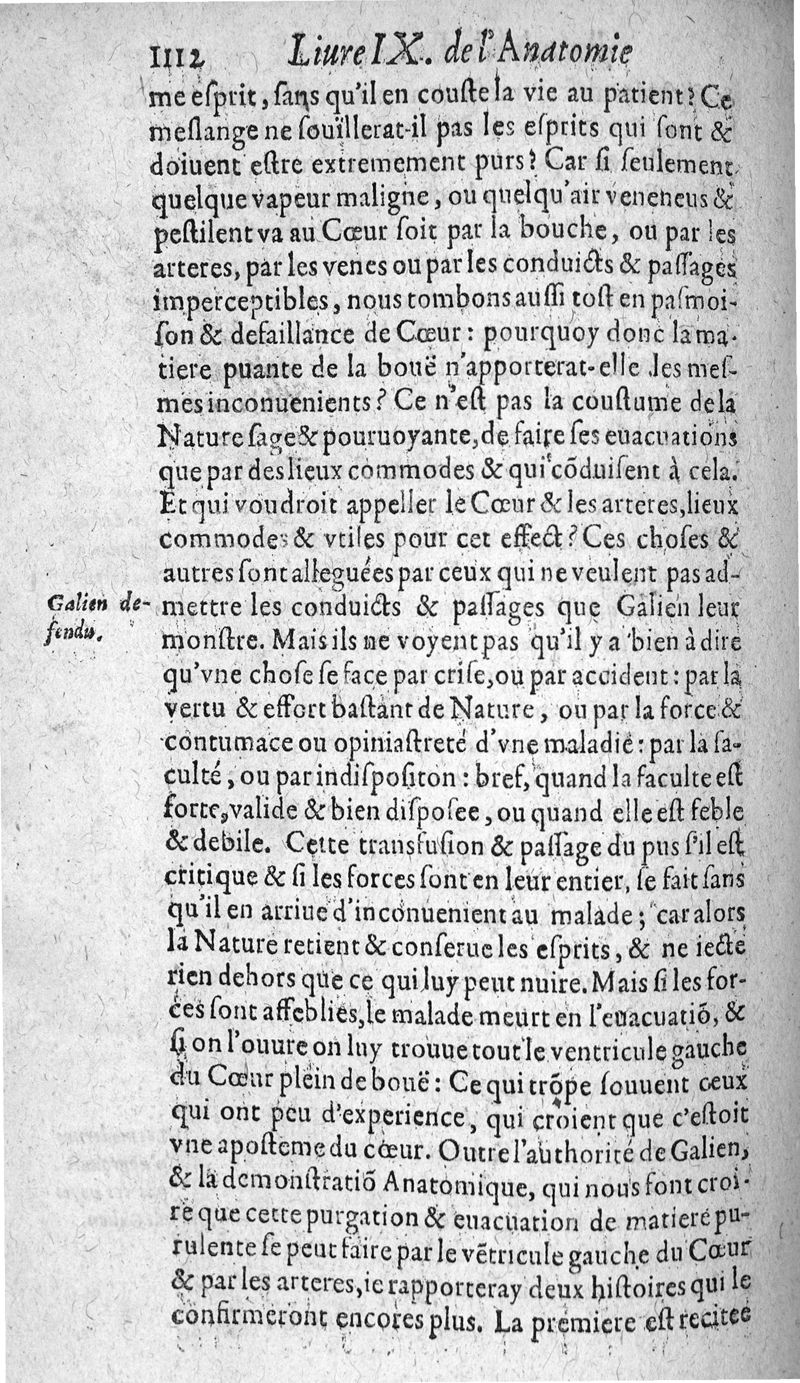 1112 Liure IX. de l'Anatomie
me eſprit, ſans qu'il en couſte la vie au patient? Ce
meſlange ne ſouïllerat-il pas les eſprits qui ſont &
doiuent eſtre extremement purs? Car ſi ſeulement
quelque vapeur maligne, ou quelqu'air veneneus &
peſtilent va au Cœur ſoit par la bouche, ou par les
arteres, par les venes ou par les conduicts & paſſages
imperceptibles, nous tombons auſſi toſt en paſmoi-
ſon & defaillance de Cœur: pourquoy donc la ma-
tiere puante de la bouë n'apporterat-elle les meſ-
mes inconuenients? Ce n'eſt pas la couſtume de la
Nature ſage & pouruoyante, de faire ſes euacuations
que par des lieux commodes & qui cõduiſent à cela.
Et qui voudroit appeller le Cœur & les arteres, lieux
commodes & vtiles pour cet effect? Ces choſes &
autres ſont alleguées par ceux qui ne veulent pas ad-
Galien de-
fendu.
mettre les conduicts & paſſages que Galien leur
monſtre. Mais ils ne voyent pas qu'il y a bien à dire
qu'vne choſe ſe face par criſe, ou par accident: par la
vertu & effort baſtant de Nature, ou par la force &
contumace ou opiniaſtreté d'vne maladie: par la fa-
culté, ou par indiſpoſiton: bref, quand la faculte eſt
forte, valide & bien diſpoſee, ou quand elle eſt feble
& debile. Cette transfuſion & paſſage du pus ſ'il eſt
critique & ſi les forces ſont en leur entier, ſe fait ſans
qu'il en arriue d'inconuenient au malade; car alors
la Nature retient & conſerue les eſprits, & ne iecte
rien dehors que ce qui luy peut nuire. Mais ſi les for-
ces ſont affeblies, le malade meurt en l'euacuatiõ, &
ſi on l'ouure on luy trouue tout le ventricule gauche
du Cœur plein de bouë: Ce qui trõpe ſouuent ceux
qui ont peu d'experience, qui croient que c'eſtoit
vne apoſteme du cœur. Outre l'authorité de Galien,
& la demonſtratiõ Anatomique, qui nous font croi-
re que cette purgation & euacuation de matiere pu-
rulente ſe peut faire par le vẽtricule gauche du Cœur
& par les arteres, ie rapporteray deux hiſtoires qui le
confirmeront encores plus. La premiere eſt recitee